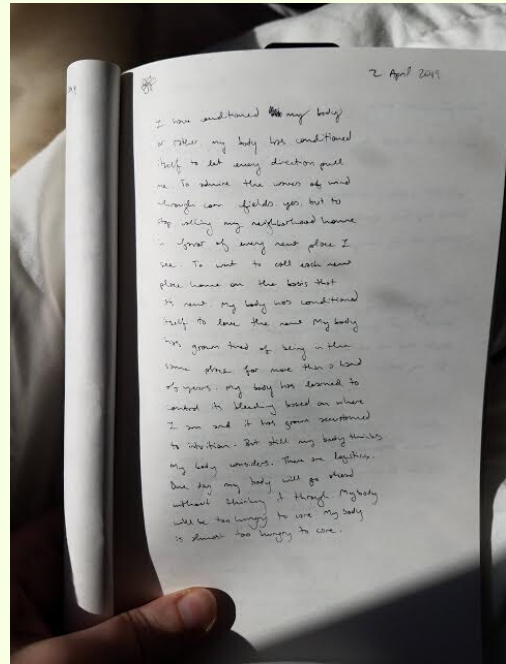 2 April 2019
I have conditioned my body
or rather, my body has conditioned
itself to let every direction pull
me. To admire the waves of wind
through corn fields, yes, but to
stop calling my neighborhood home
in favor of every new place I
see. To want to call each new
place home on the basis that
it's new. My body has conditioned
itself to love the new. My body
has grown tired of being in the
same place for more than a hand
of years. My body has learned to
control its bleeding based on where
I am and it has grown accustomed
to intuition. But still my body thinks.
My body considers. There are logistics.
One day my body will go ahead
without thinking it through. My body
will be too hungry to care. My body
is almost too hungry to care.